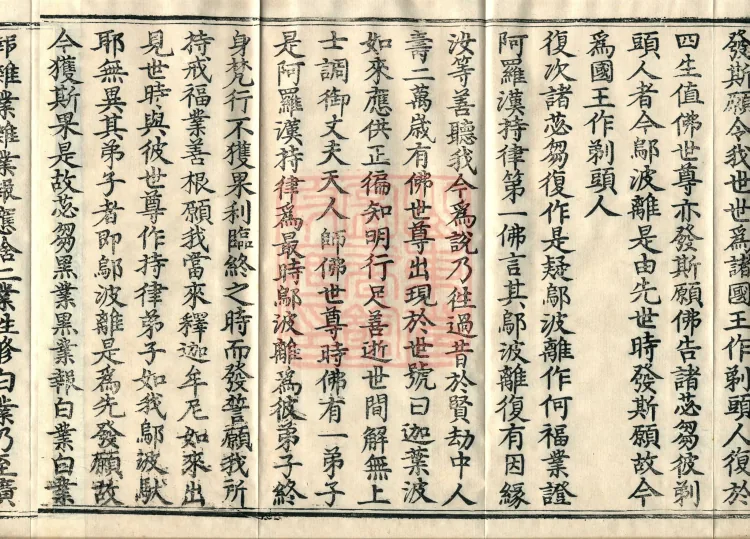 發斯願令我世世爲諸國王作剃頭人復於
四生值佛世尊亦發斯願佛告諸苾芻彼剃
頭人者今鄔波離是由先世時發斯願故今
爲國王作剃頭人
復次諸苾芻復作是疑鄔波離作何福業證
阿羅漢持律第一佛言其鄔波離復有因緣
汝等善聽我今爲說乃往過昔於賢劫中人
壽二萬歲有佛世尊出現於世號曰迦葉波
如來應供正徧知明行足善逝世間解無上
士調御丈夫天人師佛世尊時佛有一弟子
是阿羅漢持律爲最時鄔波離爲彼弟子終
身梵行不獲果利臨終之時而發誓願我所
持戒福業善根願我當來釋迦牟尼如來出
見世時與彼世尊作持律弟子如我鄔波馱
耶無異其弟子者即鄔波離是爲先發願故
今獲斯果是故苾芻黑業黑業報白業白業
報雜業雜業報應捨二業性修白業乃至廣